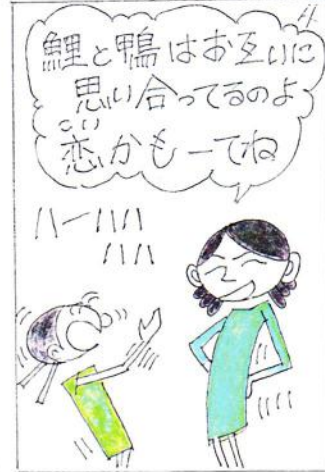 4
鯉と鴨はお互いに
思い合ってるのよ
こい
恋かもーてね
ハーハハ
ハハ